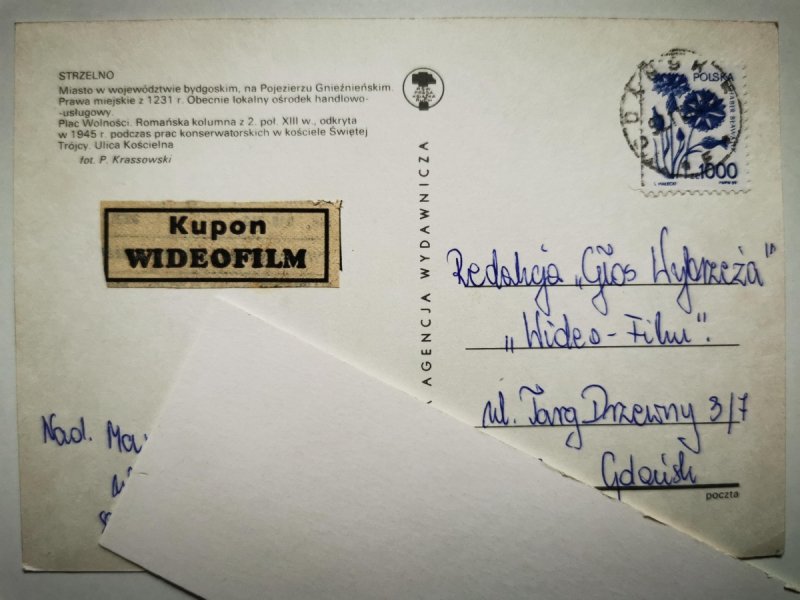 STRZELNO
Miasto w województwie bydgoskim, na Pojezierzu Gnieźnieńskim.
Prawa miejskie z 1231 r. Obecnie lokalny ośrodek handlowo-
-usługowy
Plac Wolności. Romańska kolumna z 2. poł. XIII w., odkryta
w 1945 r. podczas prac konserwatorskich w kościele Świętej
Trójcy. Ulica Kościelna
fot. P. Krassowski
Kupon
WIDEOFILM
AGENCJA WYDAWNICZA
POLSKA
zł 1000
GDAŃSK
Redakcja „Głos Wybrzeża"
„Wideo-Film".
ul. Targ Drzewny 3/7
Gdańsk
poczta
Nad.